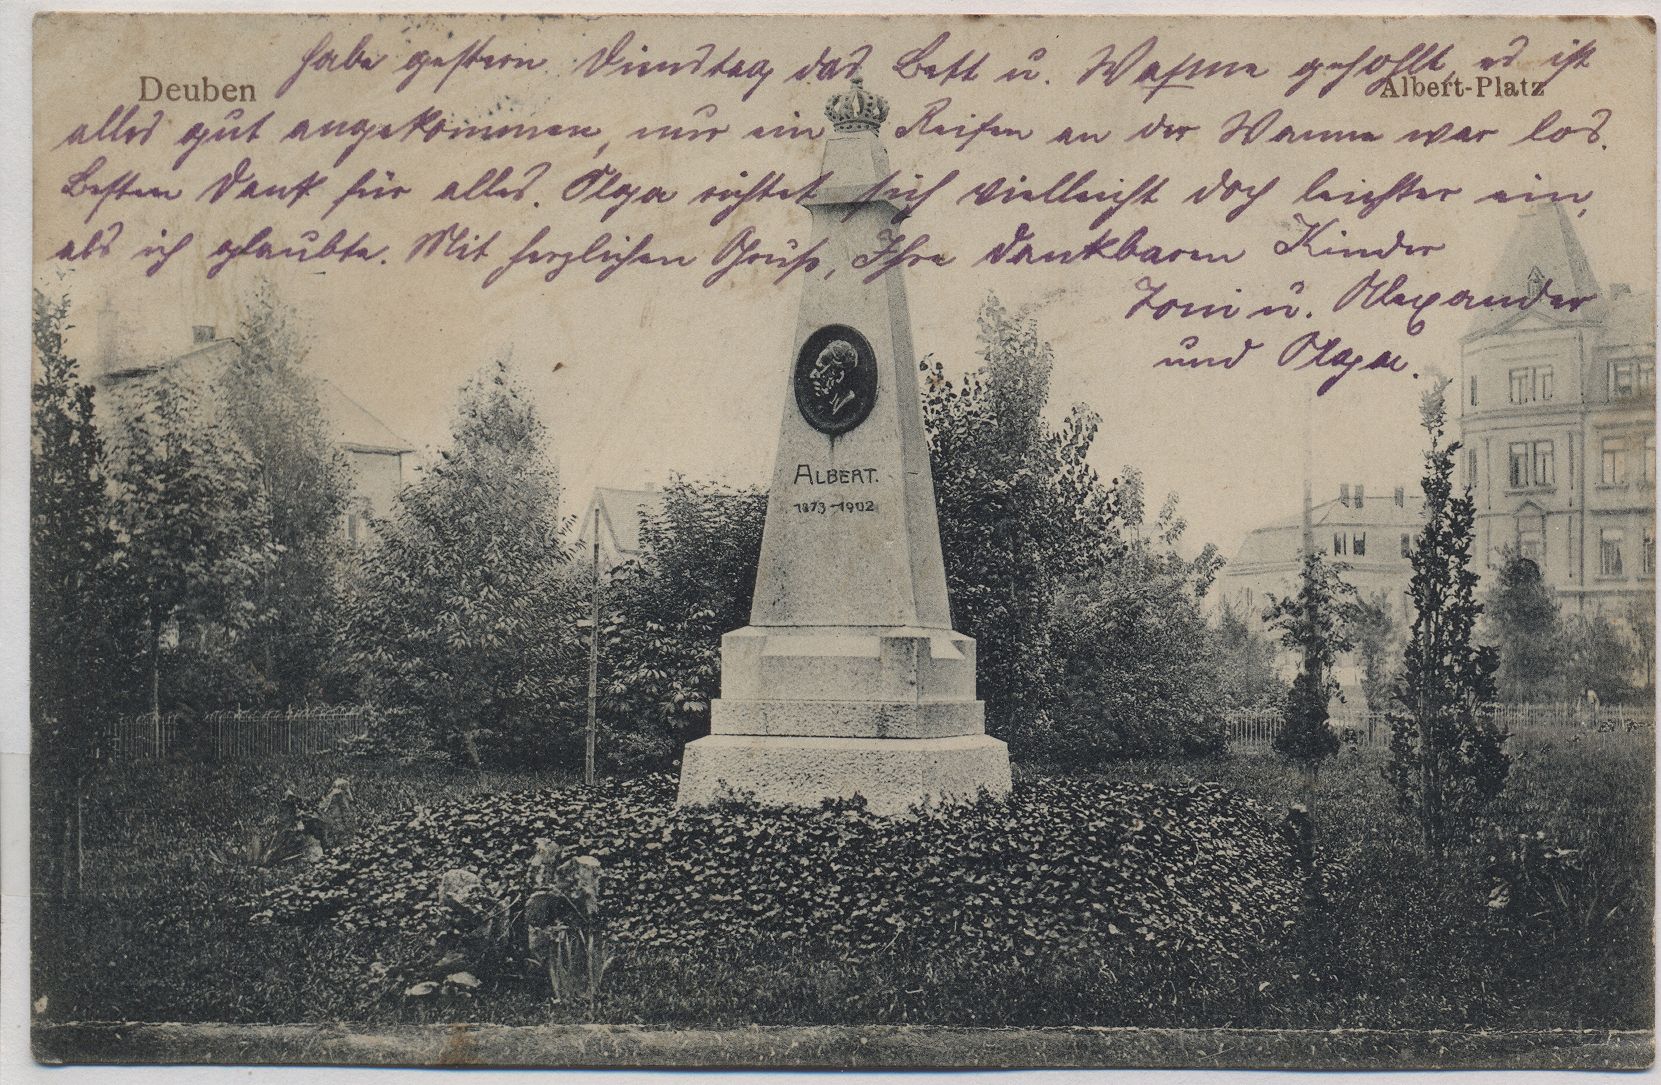 Deuben
Albert-Platz
habe gestern Dienstag das Bett u. Wanne gehohlt es ist
alles gut angekommen, nur ein Reifen an der Wanne war los.
Besten Dank für alles. Olga richtet sich vielleicht doch leichter ein,
als ich glaubte. Mit herzlichen Gruß, Ihre dankbaren Kinder
Toni u. Alexander
und Olga.
ALBERT.
1873-1902